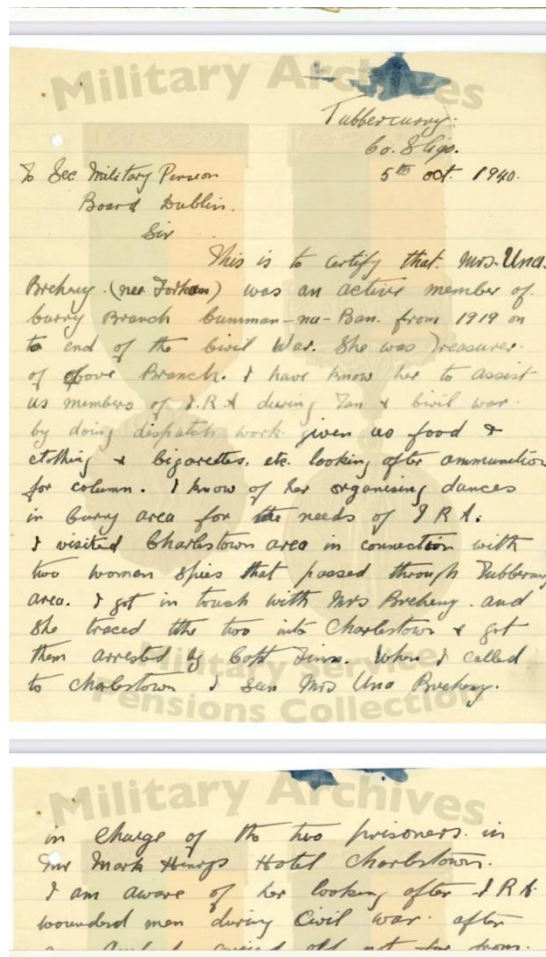 Military Archives
Tubbercurry.
Co. Sligo.
To Sec Military Pension
5th oct. 1940.
Board Dublin.
Sir
This is to certify that Mrs. Una
Breheny. (nee Forkan) was an active member of
Curry Branch Cumman-na-Ban. from 1919 on
to end of the Civil War. She was Treasurer
of above Branch. I have know her to assist
us members of I.R.A during Tan & Civil war
by doing dispatch work given us food &
clothing & Cigarettes. etc. looking after ammunition
for column. I know of her organising dances
in Curry area for the needs of I R A.
I visited Charlestown area in connection with
two women spies that passed through Tubbercurry
area. I got in touch with Mrs Breheny. and
She traced the two into Charlestown & got
them arrested by Capt When I called
to Charlestown I seen Mrs Una Breheny.
Military Service
Pensions Collection
Military Archives
in charge of the two prisoners in
Mr Mark Henrys Hotel Charlestown.
I am aware of her looking after I R A
wounded men during Civil war. after